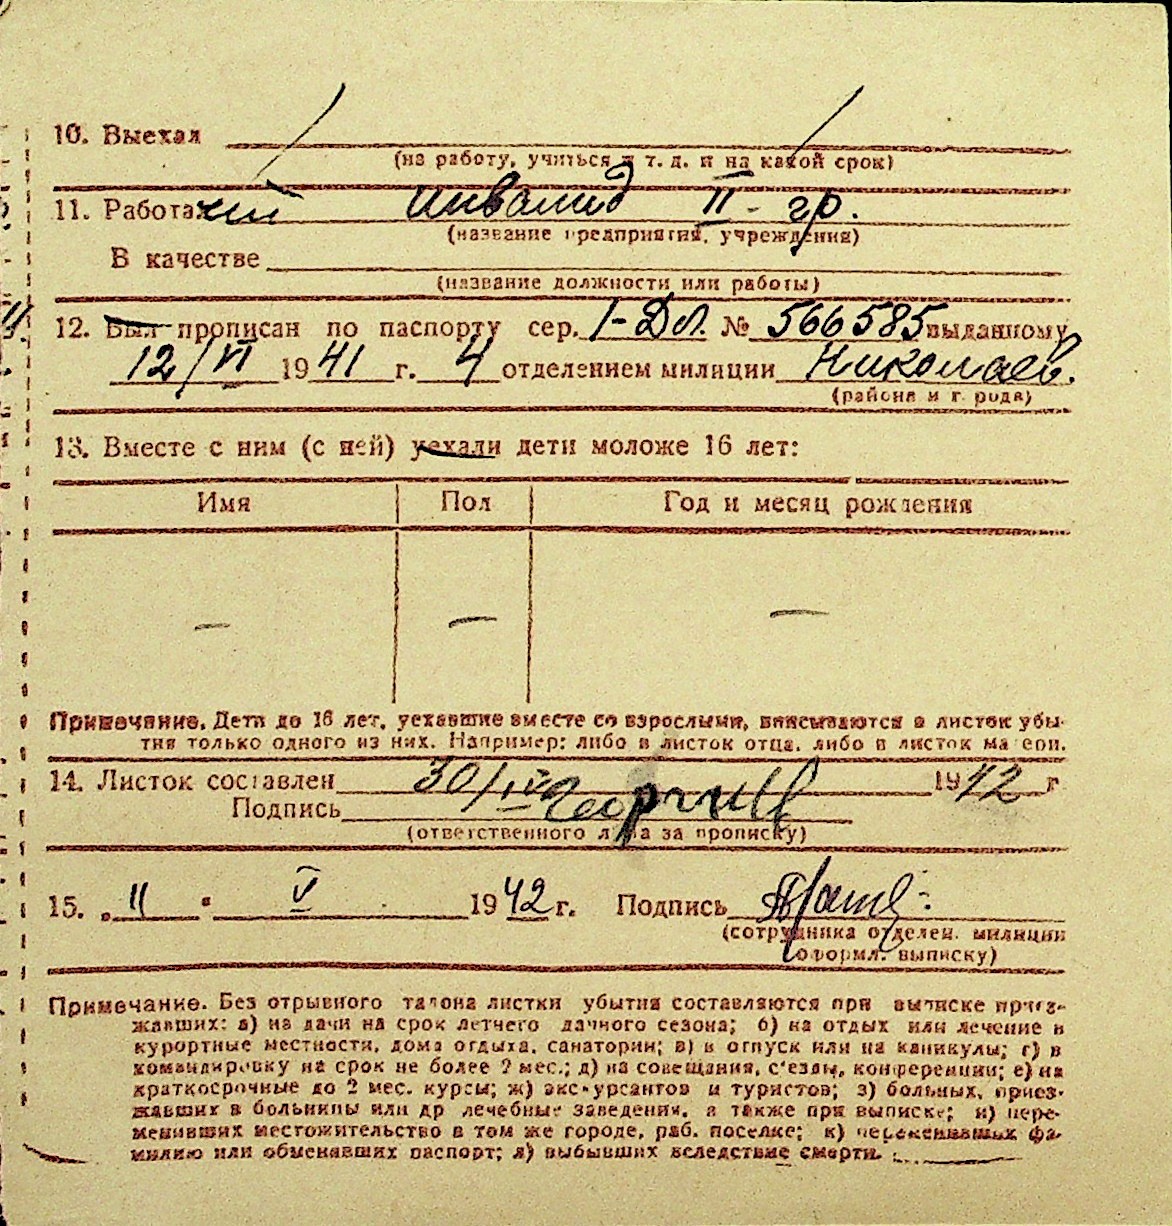 10. Выехал
(на работу, учиться и т. д. и на какой срок)
11. Работа инвалид II - гр.
(название предприятия, учреждения)
В качестве
(название должности или работы)
12. Был прописан по паспорту сер. 1-Дл. № 566585 выданному
12/VI 1941 г. 4 отделением милиции Николаев.
(района и города)
13. Вместе с ним (с ней) уехали дети моложе 16 лет:
Имя Пол Год и месяц рождения
— — —
Примечание. Дети до 16 лет, уехавшие вместе со взрослыми, вписываются в листок убы-
тия только одного из них. Например: либо в листок отца, либо в листок матери.
14. Листок составлен 30/IV 1942 г
Подпись
(ответственного лица за прописку)
15. „11" V 1942 г. Подпись
(сотрудника отделен. милиции
оформл. выписку)
Примечание. Без отрывного талона листки убытия составляются при выписке приез-
жавших: а) на дачи на срок летнего дачного сезона; б) на отдых или лечение в
курортные местности, дома отдыха, санатории; в) в отпуск или на каникулы; г) в
командировку на срок не более 2 мес.; д) на совещания, с'езды, конференции; е) на
краткосрочные до 2 мес. курсы; ж) экскурсантов и туристов; з) больных, приез-
жавших в больницы или др лечебные заведения, а также при выписке; и) пере-
менивших местожительство в том же городе, раб. поселке; к) переменивших фа-
милию или обменявших паспорт; л) выбывших вследствие смерти.